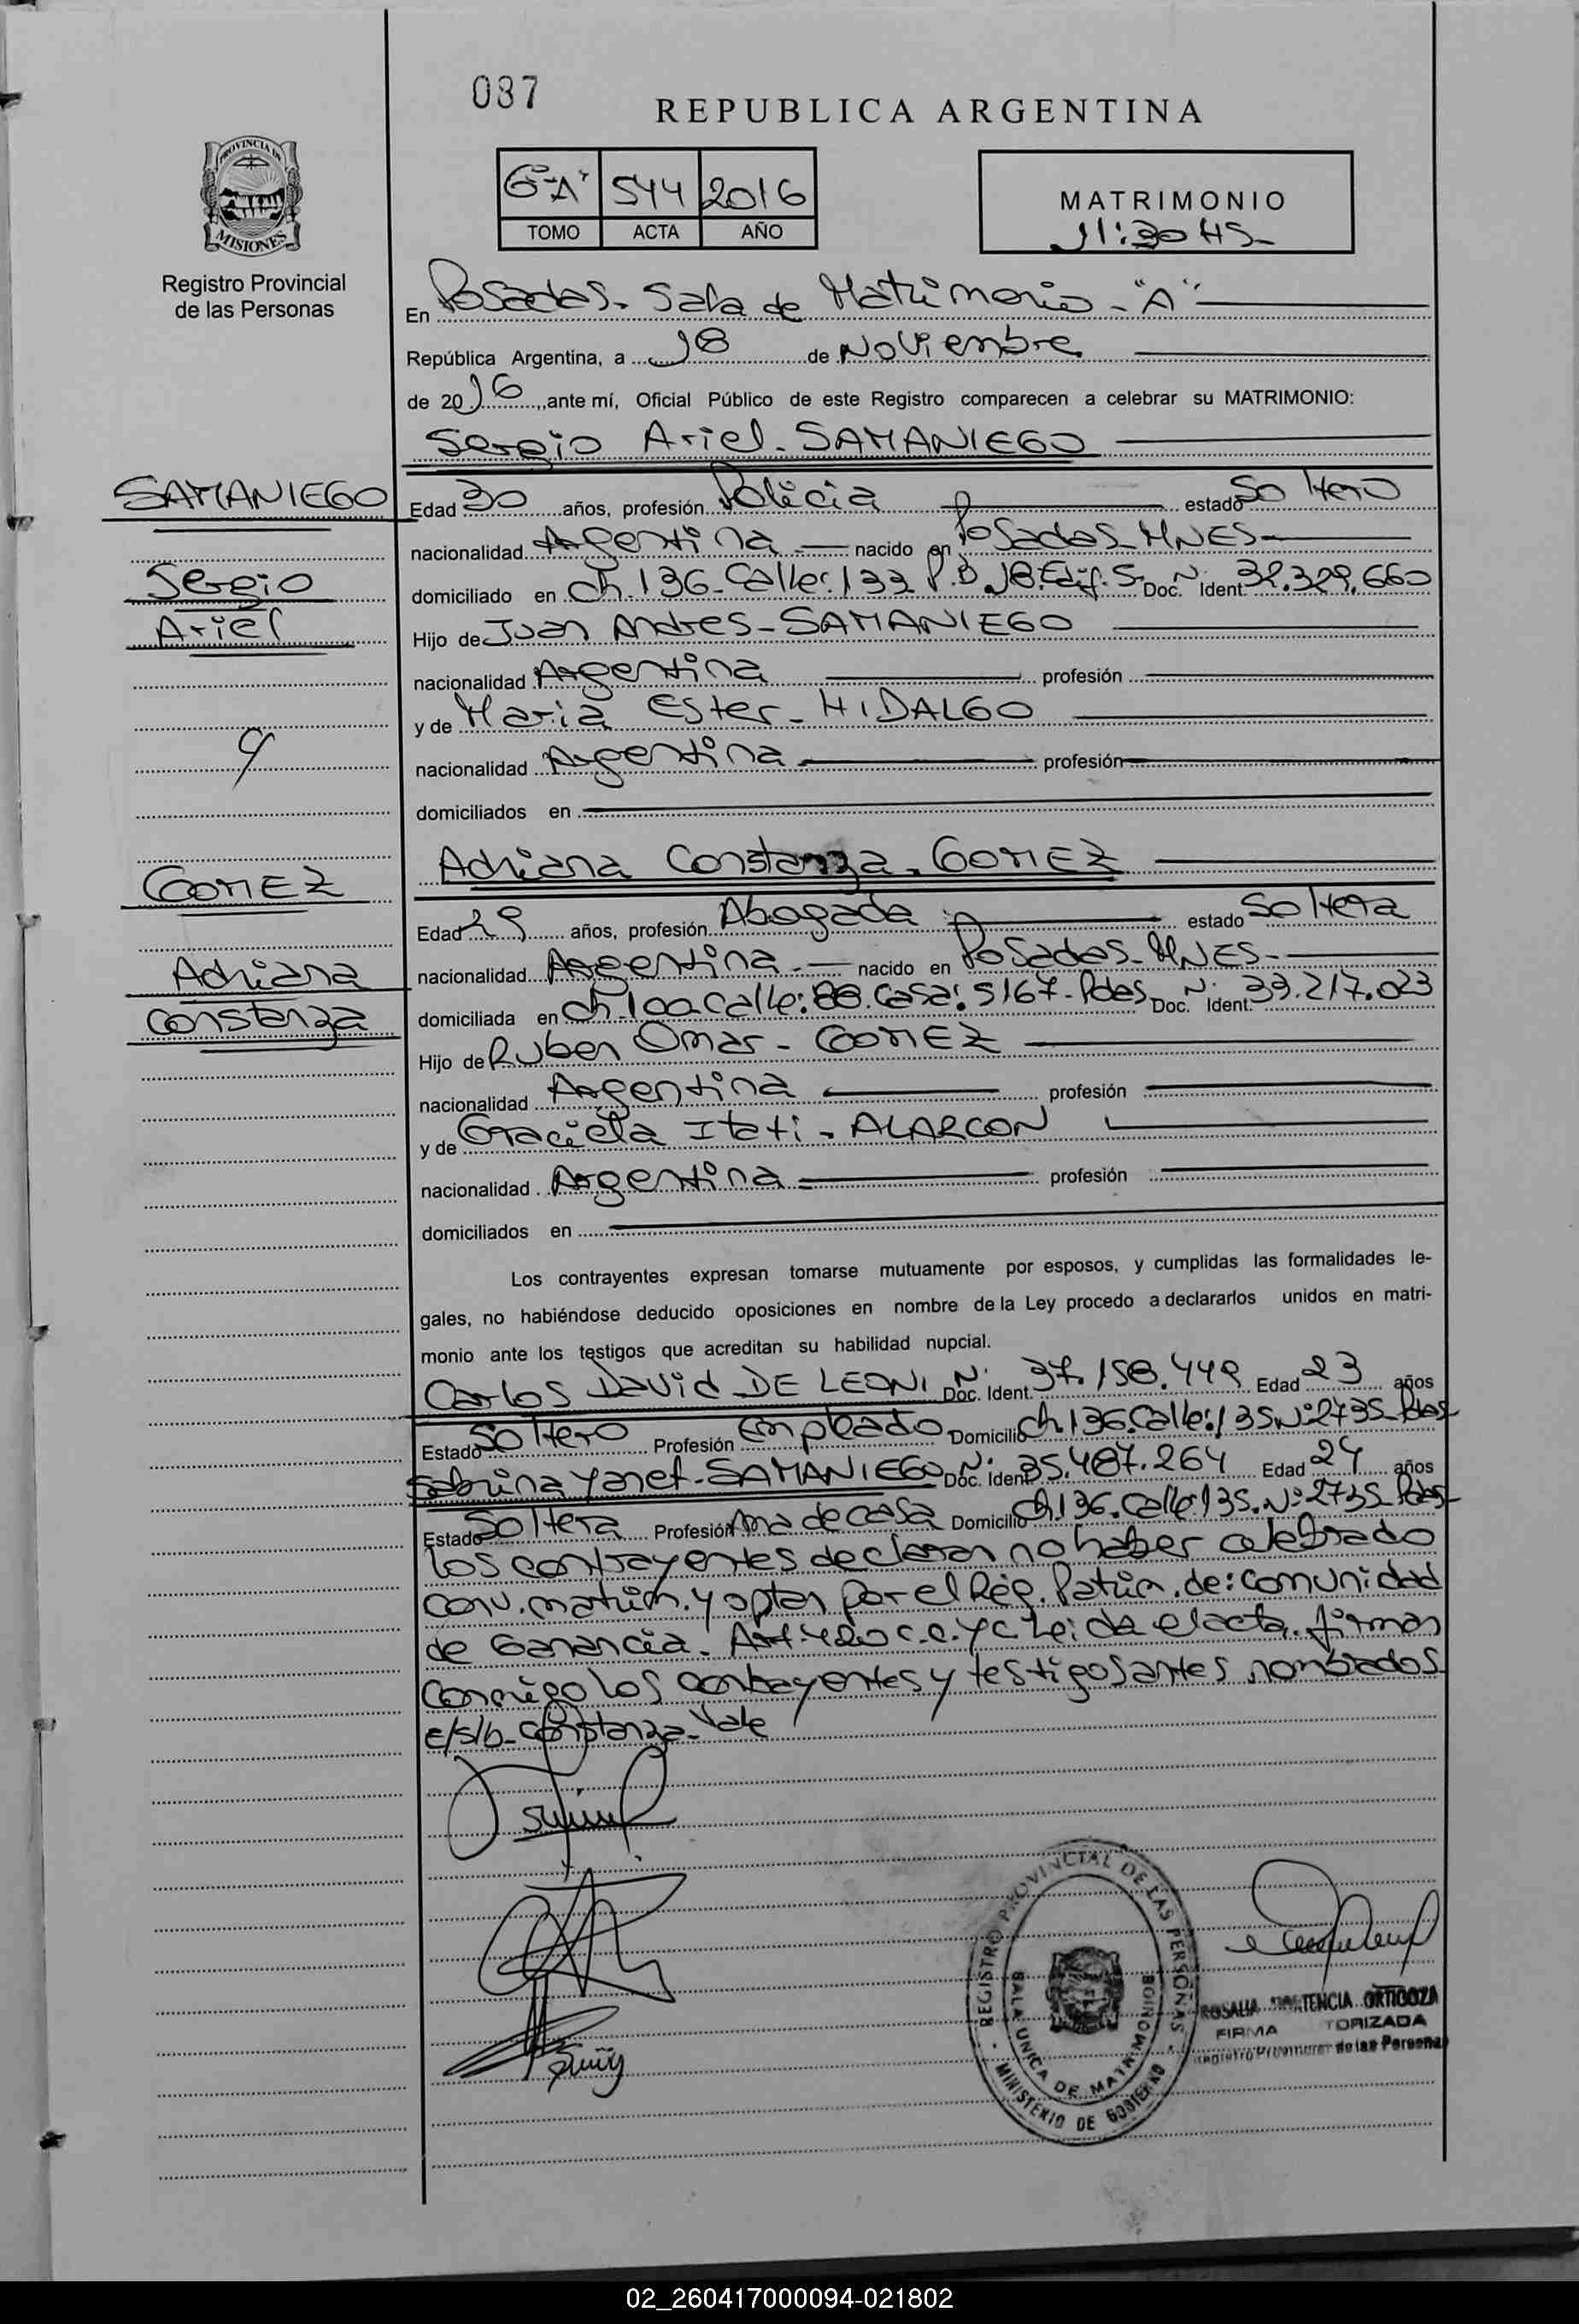 037
REPUBLICA ARGENTINA
PROVINCIA DE
MISIONES
Registro Provincial
de las Personas
6º"A" 544 2016
TOMO ACTA AÑO
MATRIMONIO
11:30 HS-
En Posadas- Sala de Matrimonio-"A"
República Argentina, a 18 de Noviembre
de 2016, ante mí, Oficial Público de este Registro comparecen a celebrar su MATRIMONIO:
Sergio Ariel-SAMANIEGO
SAMANIEGO
Sergio
Ariel
y
GOMEZ
Adriana
Constanza
Edad 30 años, profesión Policia estado Soltero
nacionalidad Argentina nacido en Posadas-MNES-
domiciliado en Ch.136-Calle:133 P.B JB.Edif.5- Doc. Nº Ident. 32.329.660
Hijo de Juan Andres-SAMANIEGO
nacionalidad Argentina profesión
y de Maria Ester-HIDALGO
nacionalidad Argentina profesión
domiciliados en
Adriana Constanza-GOMEZ
Edad 29 años, profesión Abogada estado Soltera
nacionalidad Argentina nacido en Posadas-MNES-
domiciliada en Ch.100.Calle:88.Casa:5167-Pdas Doc. Nº Ident. 33.217.023
Hijo de Ruben Omar-GOMEZ
nacionalidad Argentina profesión
y de Graciela Itati-ALARCON
nacionalidad Argentina profesión
domiciliados en
Los contrayentes expresan tomarse mutuamente por esposos, y cumplidas las formalidades le-
gales, no habiéndose deducido oposiciones en nombre de la Ley procedo a declararlos unidos en matri-
monio ante los testigos que acreditan su habilidad nupcial.
Carlos David-DE LEONI Doc. Nº Ident. 37.158.449 Edad 23 años
Estado Soltero Profesión Empleado Domicilio Ch.136.Calle:135.Nº2735-Pdas-
Sabrina Yanet-SAMANIEGO Doc. Nº Ident. 35.487.264 Edad 24 años
Estado Soltera Profesión Ama de casa Domicilio Ch.136.Calle:135.Nº2735-Pdas-
Los contrayentes declaran no haber celebrado
conv.matrim.y optan por el Rég.Patrim.de:comunidad
de Ganancia. Art.420 c.c.yc.Leida el acta.firman
conmigo los contrayentes y testigos antes nombrados
e/s/b-Constanza-Vale
REGISTRO PROVINCIAL DE LAS PERSONAS
SALA UNICA DE MATRIMONIOS
MINISTERIO DE GOBIERNO
ROSALIA ORTIGOZA
FIRMA
de las Personas
02_260417000094-021802